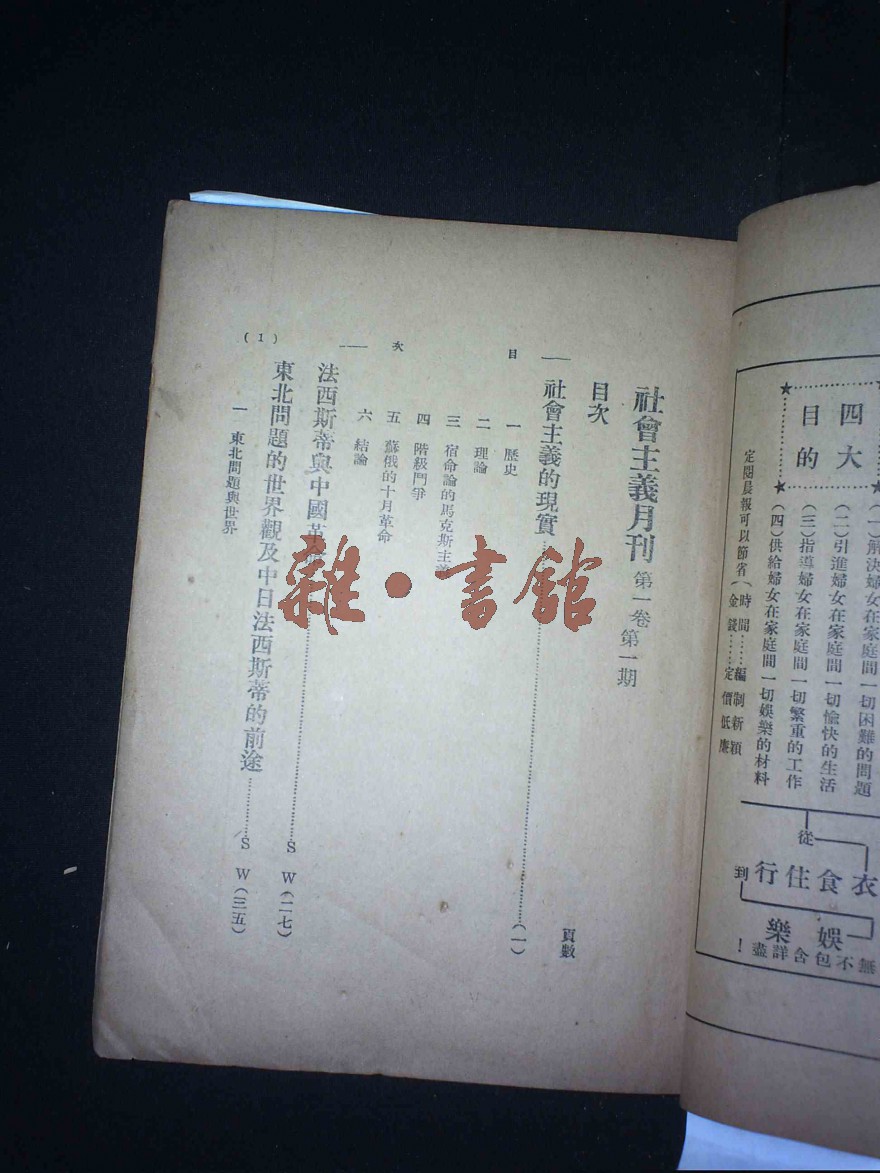 社會主義月刊 第一卷第一期
目次
頁數
社會主義的現實……(一)
一 歷史
二 理論
三 宿命論的馬克斯主義
四 階級鬥爭
五 蘇俄的十月革命
六 結論
法西斯蒂與中國革……S W(二七)
東北問題的世界觀及中日法西斯蒂的前途……S W(三五)
一 東北問題與世界
目 次
(1)
雜·書館
四大
目的
(一)解決婦女在家庭間一切困難的問題
(二)引進婦女在家庭間一切愉快的生活
(三)指導婦女在家庭間一切繁重的工作
(四)供給婦女在家庭間一切娛樂的材料
定閱晨報可以節省(時間……編制新穎
金錢……定價低廉
從
衣食住行
到
娛樂
無不包含詳盡!